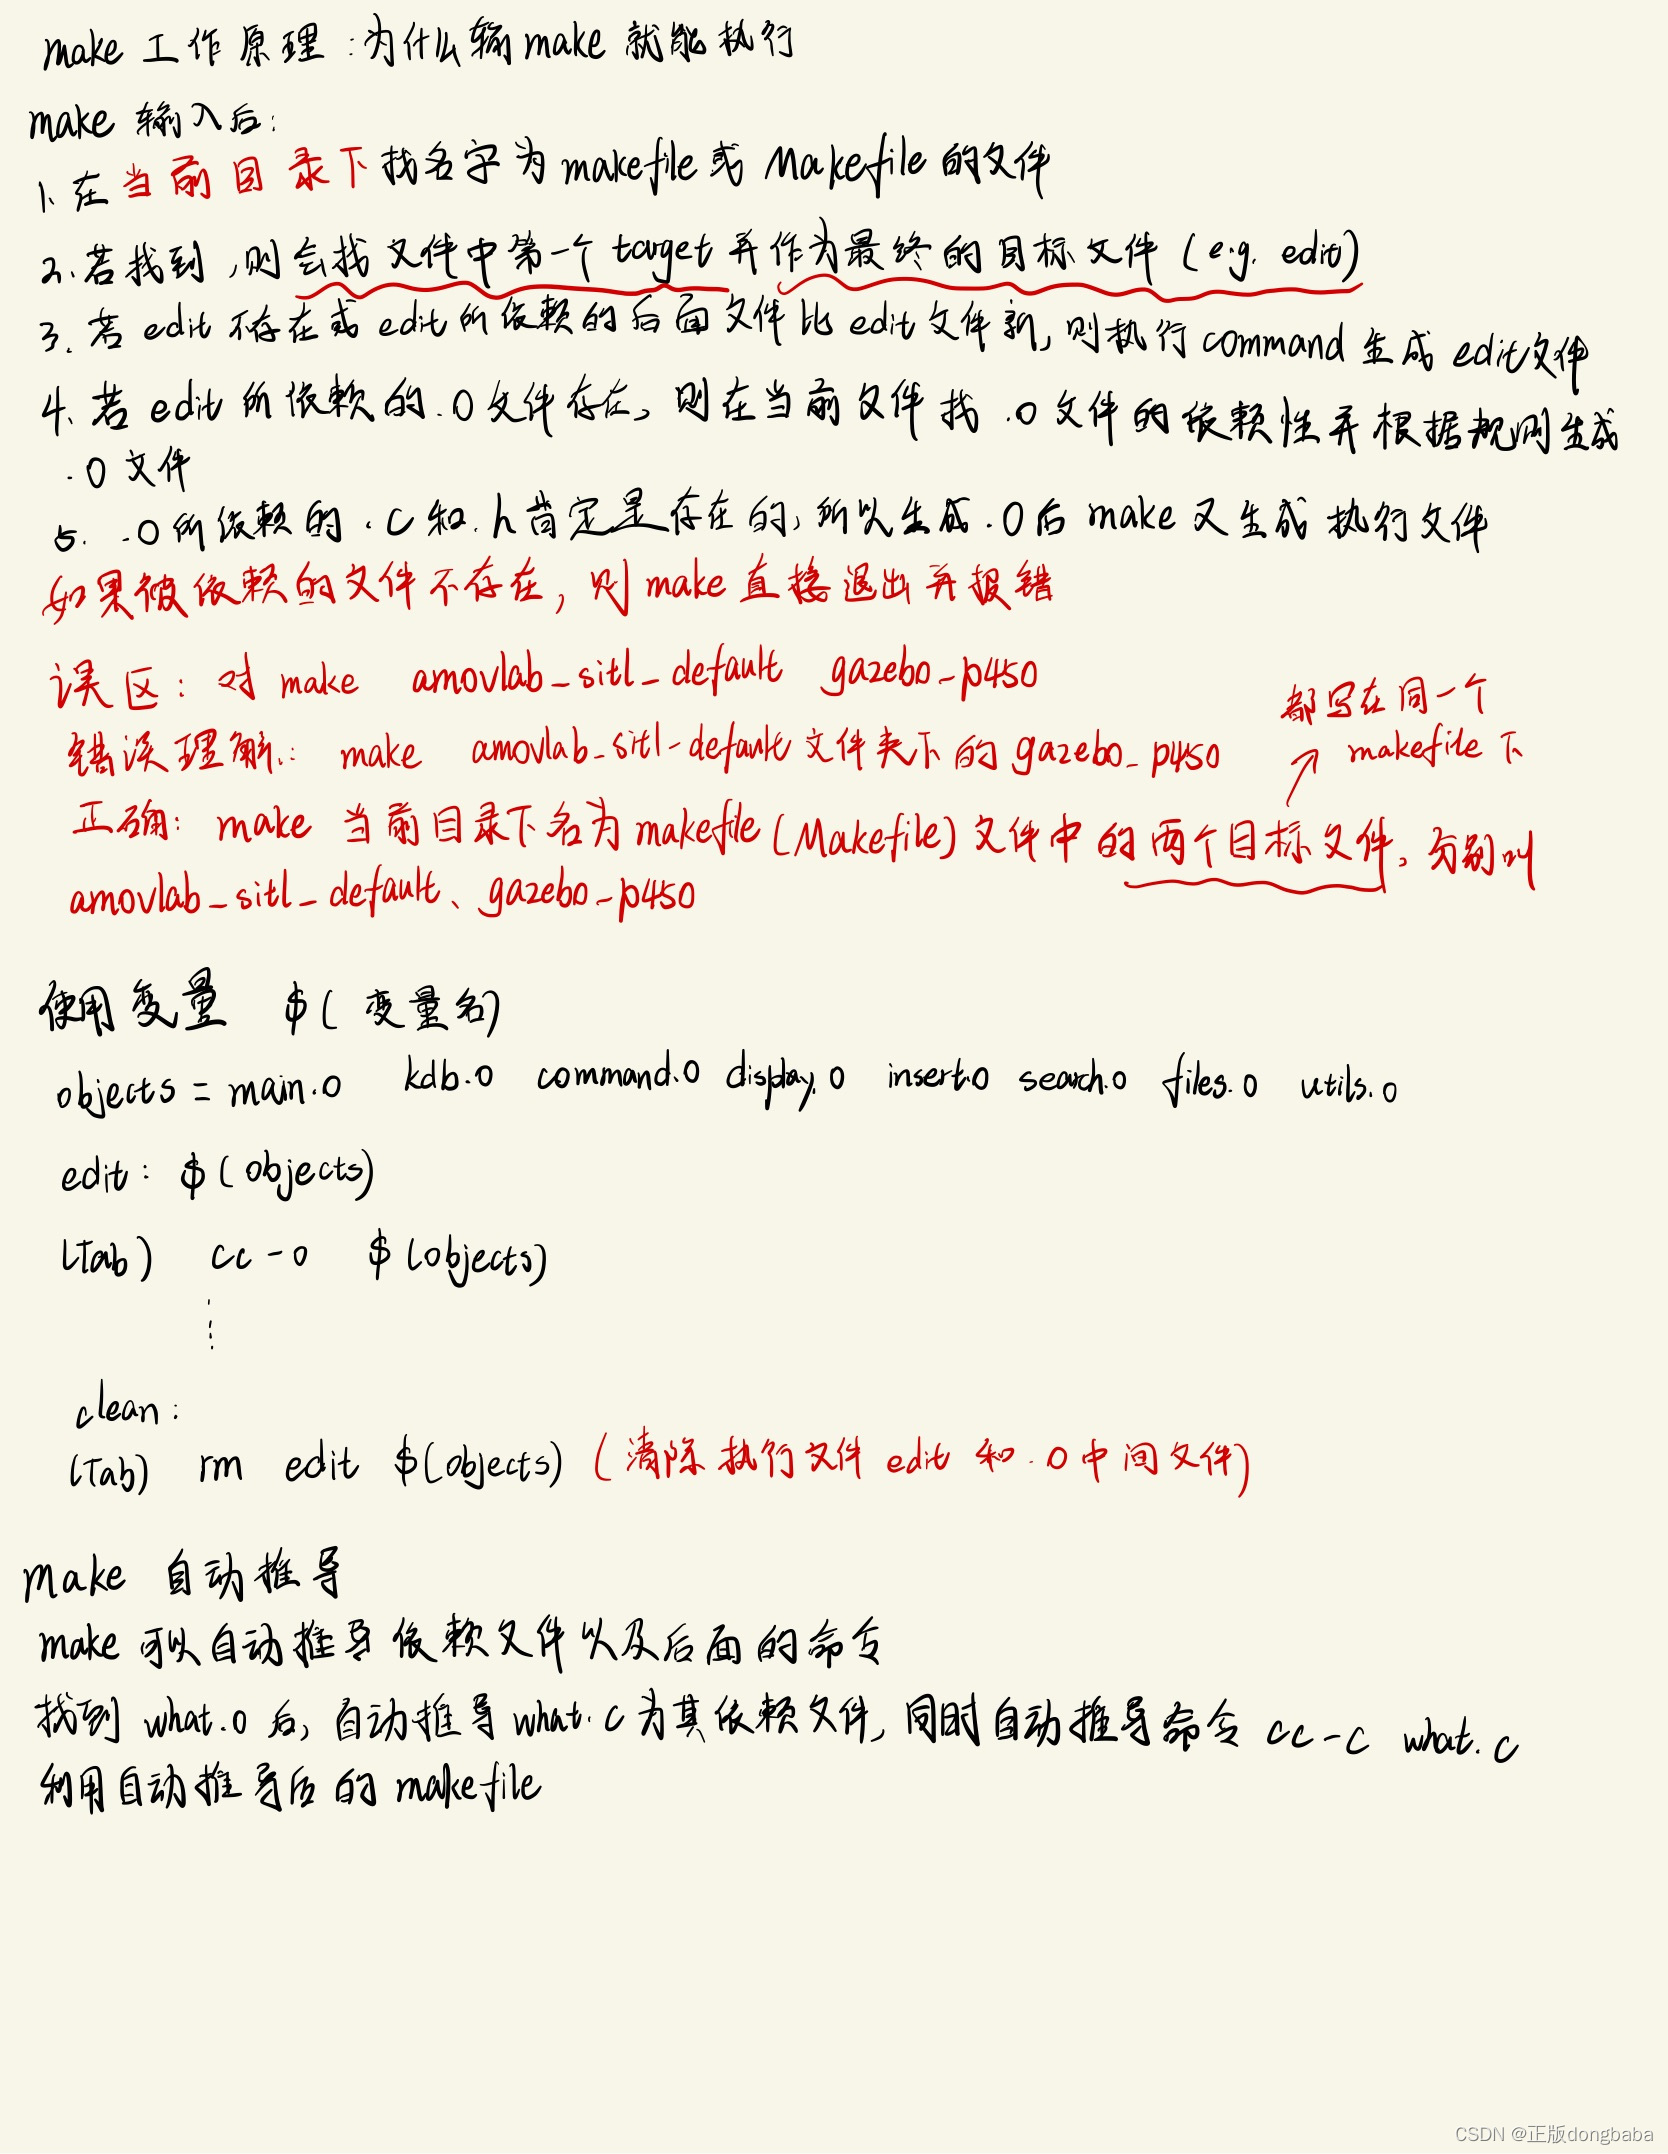 make 工作原理：为什么输make 就能执行
make 输入后：
1、在当前目录下找名字为makefile或 Makefile 的文件
2、若找到，则会找文件中第一个target并作为最终的目标文件（e.g. edit）
3、若 edit 不存在或 edit所依赖的后面文件比 edit文件新，则执行command 生成 edit文件
4、若 edit 所依赖的.o文件存在，则在当前文件找 .o文件的依赖性并根据规则生成
.o 文件
5、.o所依赖的.c和.h肯定是存在的，所以生成.o后 make 又生成执行文件
如果被依赖的文件不存在，则make直接退出并报错
误区：对 make amovlab_sitl_default gazebo_p450
错误理解：make amovlab_sitl_default文件夹下的gazebo_p450
都写在同一个
makefile 下
正确：make 当前目录下名为makefile(Makefile)文件中的两个目标文件，分别叫
amovlab_sitl_default、gazebo_p450
使用变量 $(变量名)
objects = main.o kdb.o command.o display.o insert.o search.o files.o utils.o
edit: $(objects)
(Tab) cc -o $(objects)
⋮
clean:
(Tab) rm edit $(objects)（清除执行文件edit 和.o中间文件）
make 自动推导
make可以自动推导依赖文件以及后面的命令
找到 what.o 后，自动推导what.c为其依赖文件，同时自动推导命令 cc -c what.c
利用自动推导后的 makefile
CSDN @正版dongbaba